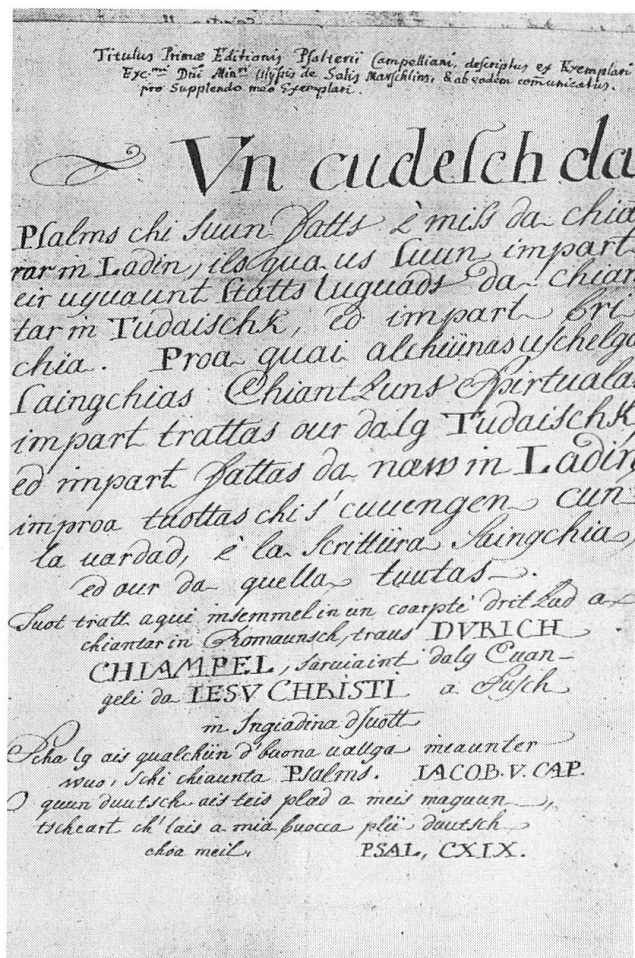 Titulus Primæ Editionis Psalterii Campelliani, descriptus ex Exemplari
Exc.mi Dni Min.ri Ulyssis de Salis Marschlins, & ab eodem comunicatus.
pro Supplendo meo Exemplari.
Vn cudeſch da
Pſalms chi ſuun fatts è miſs da chia
rar in Ladin, ils qua us ſuun impart
eir uyuaunt ſtatts luguads da chian
tar in Tudaiſchk, ed impart bri
chia. Proa quai alchiünas uſchelgo
ſaingchias Chiantzuns Spirtualas
impart trattas our dalg Tudaiſchk,
ed impart fattas da næw in Ladin,
improa tuottas chi s' cuuengen cun
la uardad, è la ſcrittüra ſaingchia,
ed our da quella tuutas.
Tuot tratt aqui inſemmel in un coarp è dritzad a
chiantar in Romaunſch, traus DVRICH
CHIAMPEL, ſaruiaint dalg Euan-
geli da IESV CHRISTI a Suſch
in Ingiadina dſuott
Scha lg ais qualchün d' buona uœlga meaunter
wuo, ſchi chiaunta Pſalms. IACOB. V. CAP.
quun duutſch ais teis plœd a meis maguun,
tſcheart ch' lais a mia buocca plü duutſch
choa meil, PSAL, CXIX.